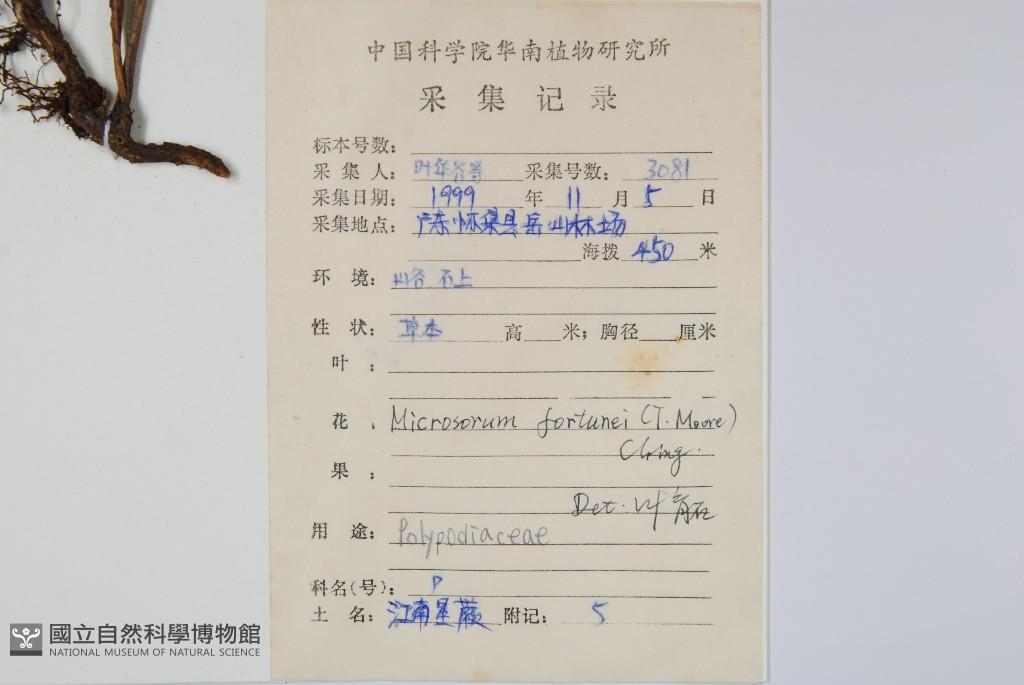 中国科学院华南植物研究所
采集记录
标本号数：
采集人：叶华谷等 采集号数：3081
采集日期：1999 年 11 月 5 日
采集地点：广东怀集县岳山林场
海拨 450 米
环境：山谷 石上
性状：草本 高 米；胸径 厘米
叶：
花： Microsorum fortunei (T. Moore)
Ching.
果：
Det. 叶
用途：Polypodiaceae
科名(号)：P
土名：江南星蕨 附记：5
國立自然科學博物館
NATIONAL MUSEUM OF NATURAL SCIENCE